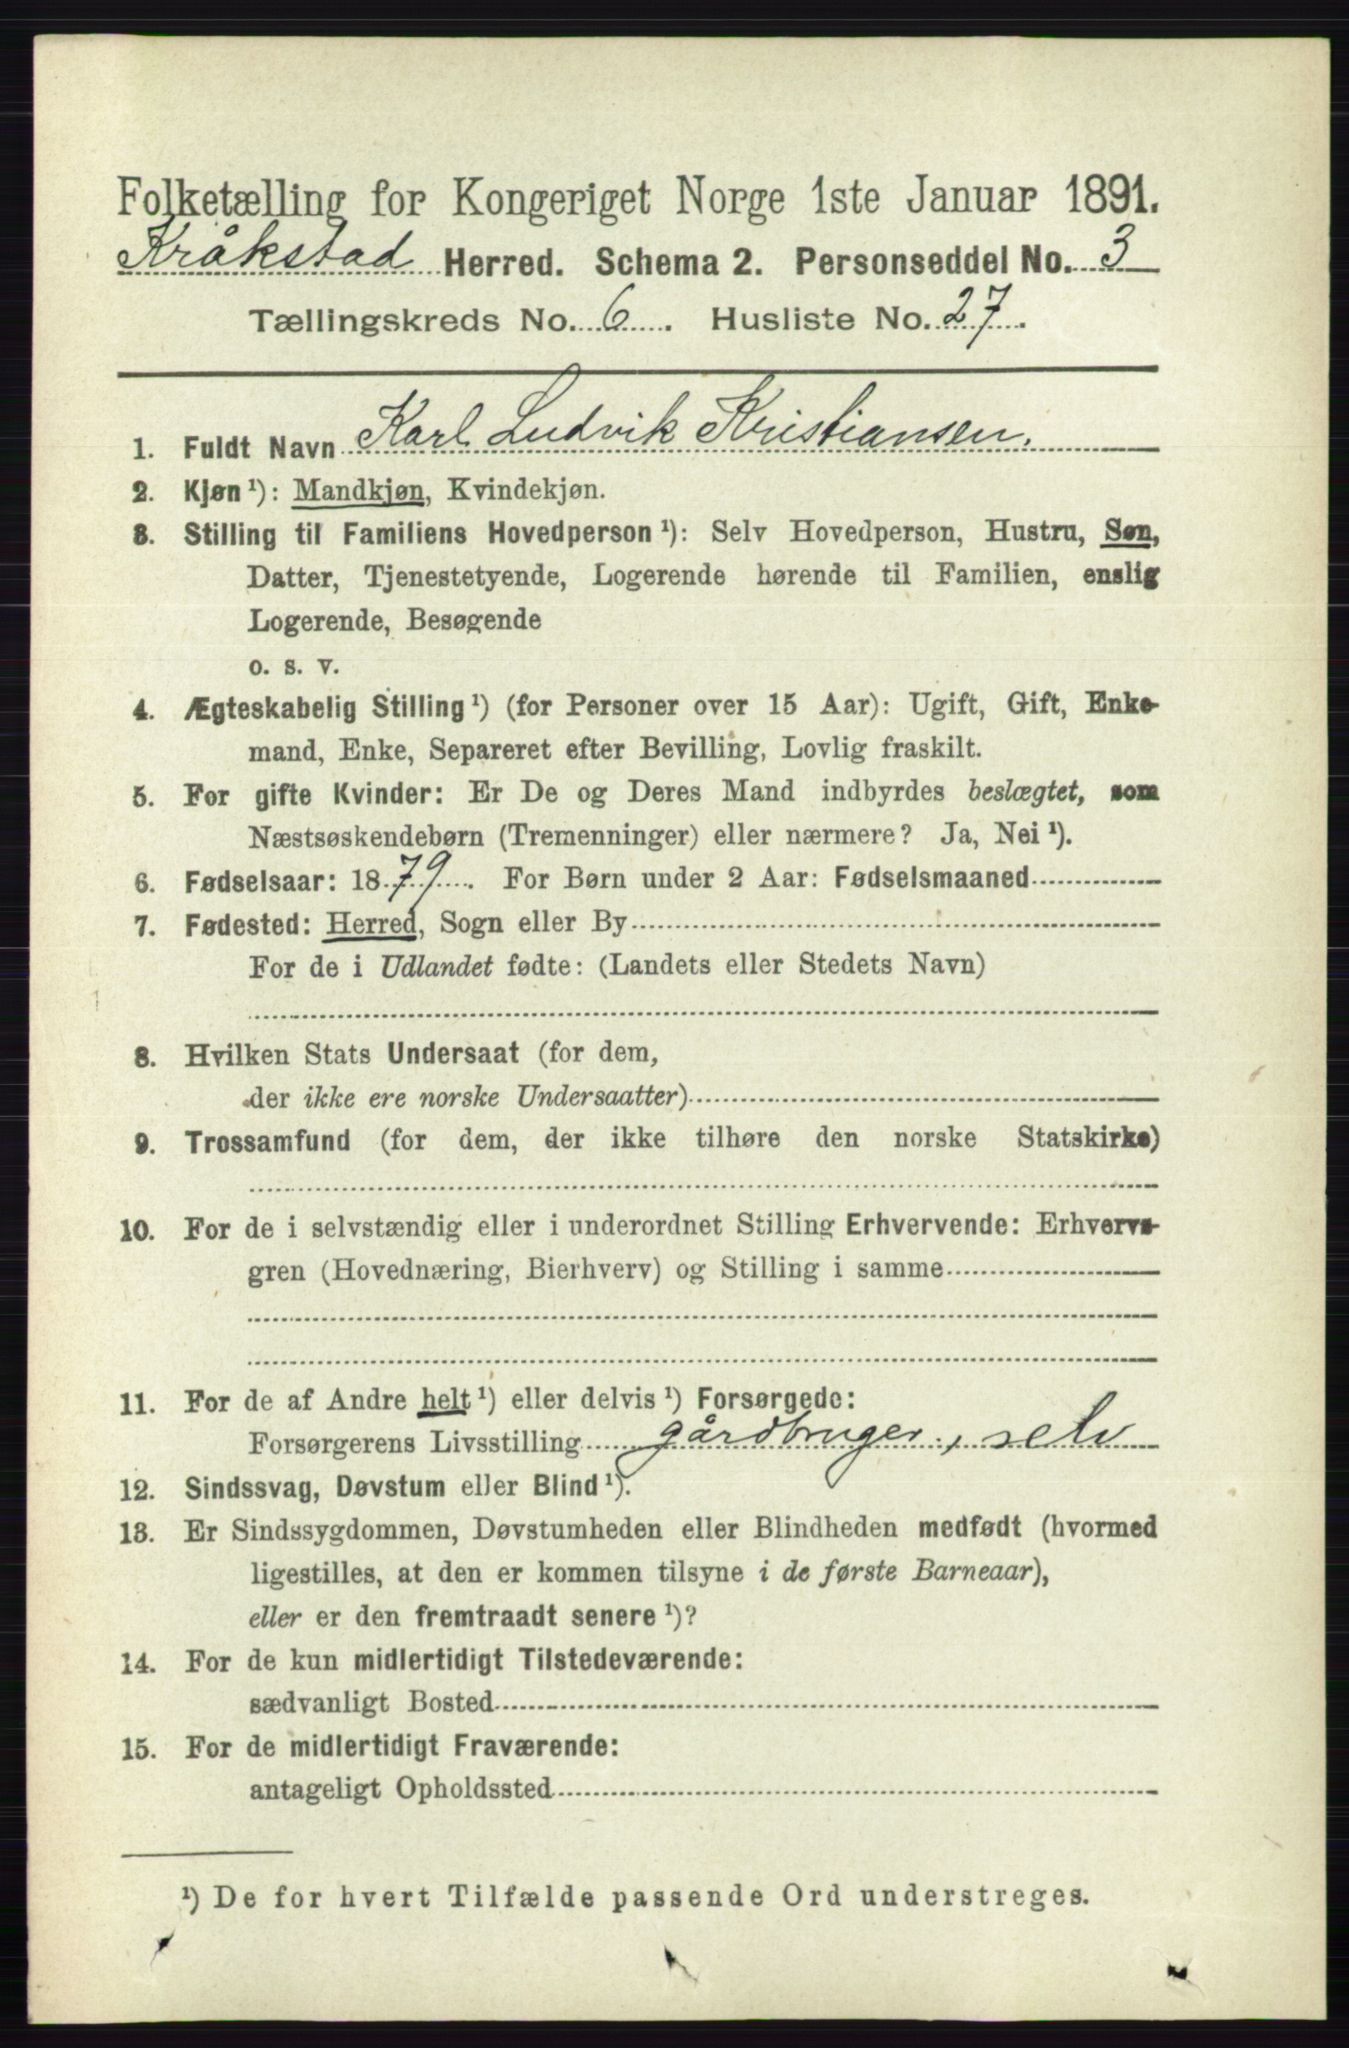 Folketælling for Kongeriget Norge 1ste Januar 1891.
Kråkstad Herred. Schema 2. Personseddel No. 3
Tællingskreds No. 6. Husliste No. 27.
1. Fuldt Navn Karl Ludvik Kristiansen.
2. Kjøn ¹): Mandkjøn, Kvindekjøn.
3. Stilling til Familiens Hovedperson ¹): Selv Hovedperson, Hustru, Søn,
Datter, Tjenestetyende, Logerende hørende til Familien, enslig
Logerende, Besøgende
o. s. v.
4. Ægteskabelig Stilling ¹) (for Personer over 15 Aar): Ugift, Gift, Enke-
mand, Enke, Separeret efter Bevilling, Lovlig fraskilt.
5. For gifte Kvinder: Er De og Deres Mand indbyrdes beslægtet, som
Næstsøskendebørn (Tremenninger) eller nærmere? Ja, Nei ¹).
6. Fødselsaar: 1879. For Børn under 2 Aar: Fødselsmaaned
7. Fødested: Herred, Sogn eller By
For de i Udlandet fødte: (Landets eller Stedets Navn)
8. Hvilken Stats Undersaat (for dem,
der ikke ere norske Undersaatter)
9. Trossamfund (for dem, der ikke tilhøre den norske Statskirke)
10. For de i selvstændig eller i underordnet Stilling Erhvervende: Erhvervs-
gren (Hovednæring, Bierhverv) og Stilling i samme
11. For de af Andre helt ¹) eller delvis ¹) Forsørgede:
Forsørgerens Livsstilling gårdbruger, selv
12. Sindssvag, Døvstum eller Blind ¹).
13. Er Sindssygdommen, Døvstumheden eller Blindheden medfødt (hvormed
ligestilles, at den er kommen tilsyne i de første Barneaar),
eller er den fremtraadt senere ¹)?
14. For de kun midlertidigt Tilstedeværende:
sædvanligt Bosted
15. For de midlertidigt Fraværende:
antageligt Opholdssted
¹) De for hvert Tilfælde passende Ord understreges.